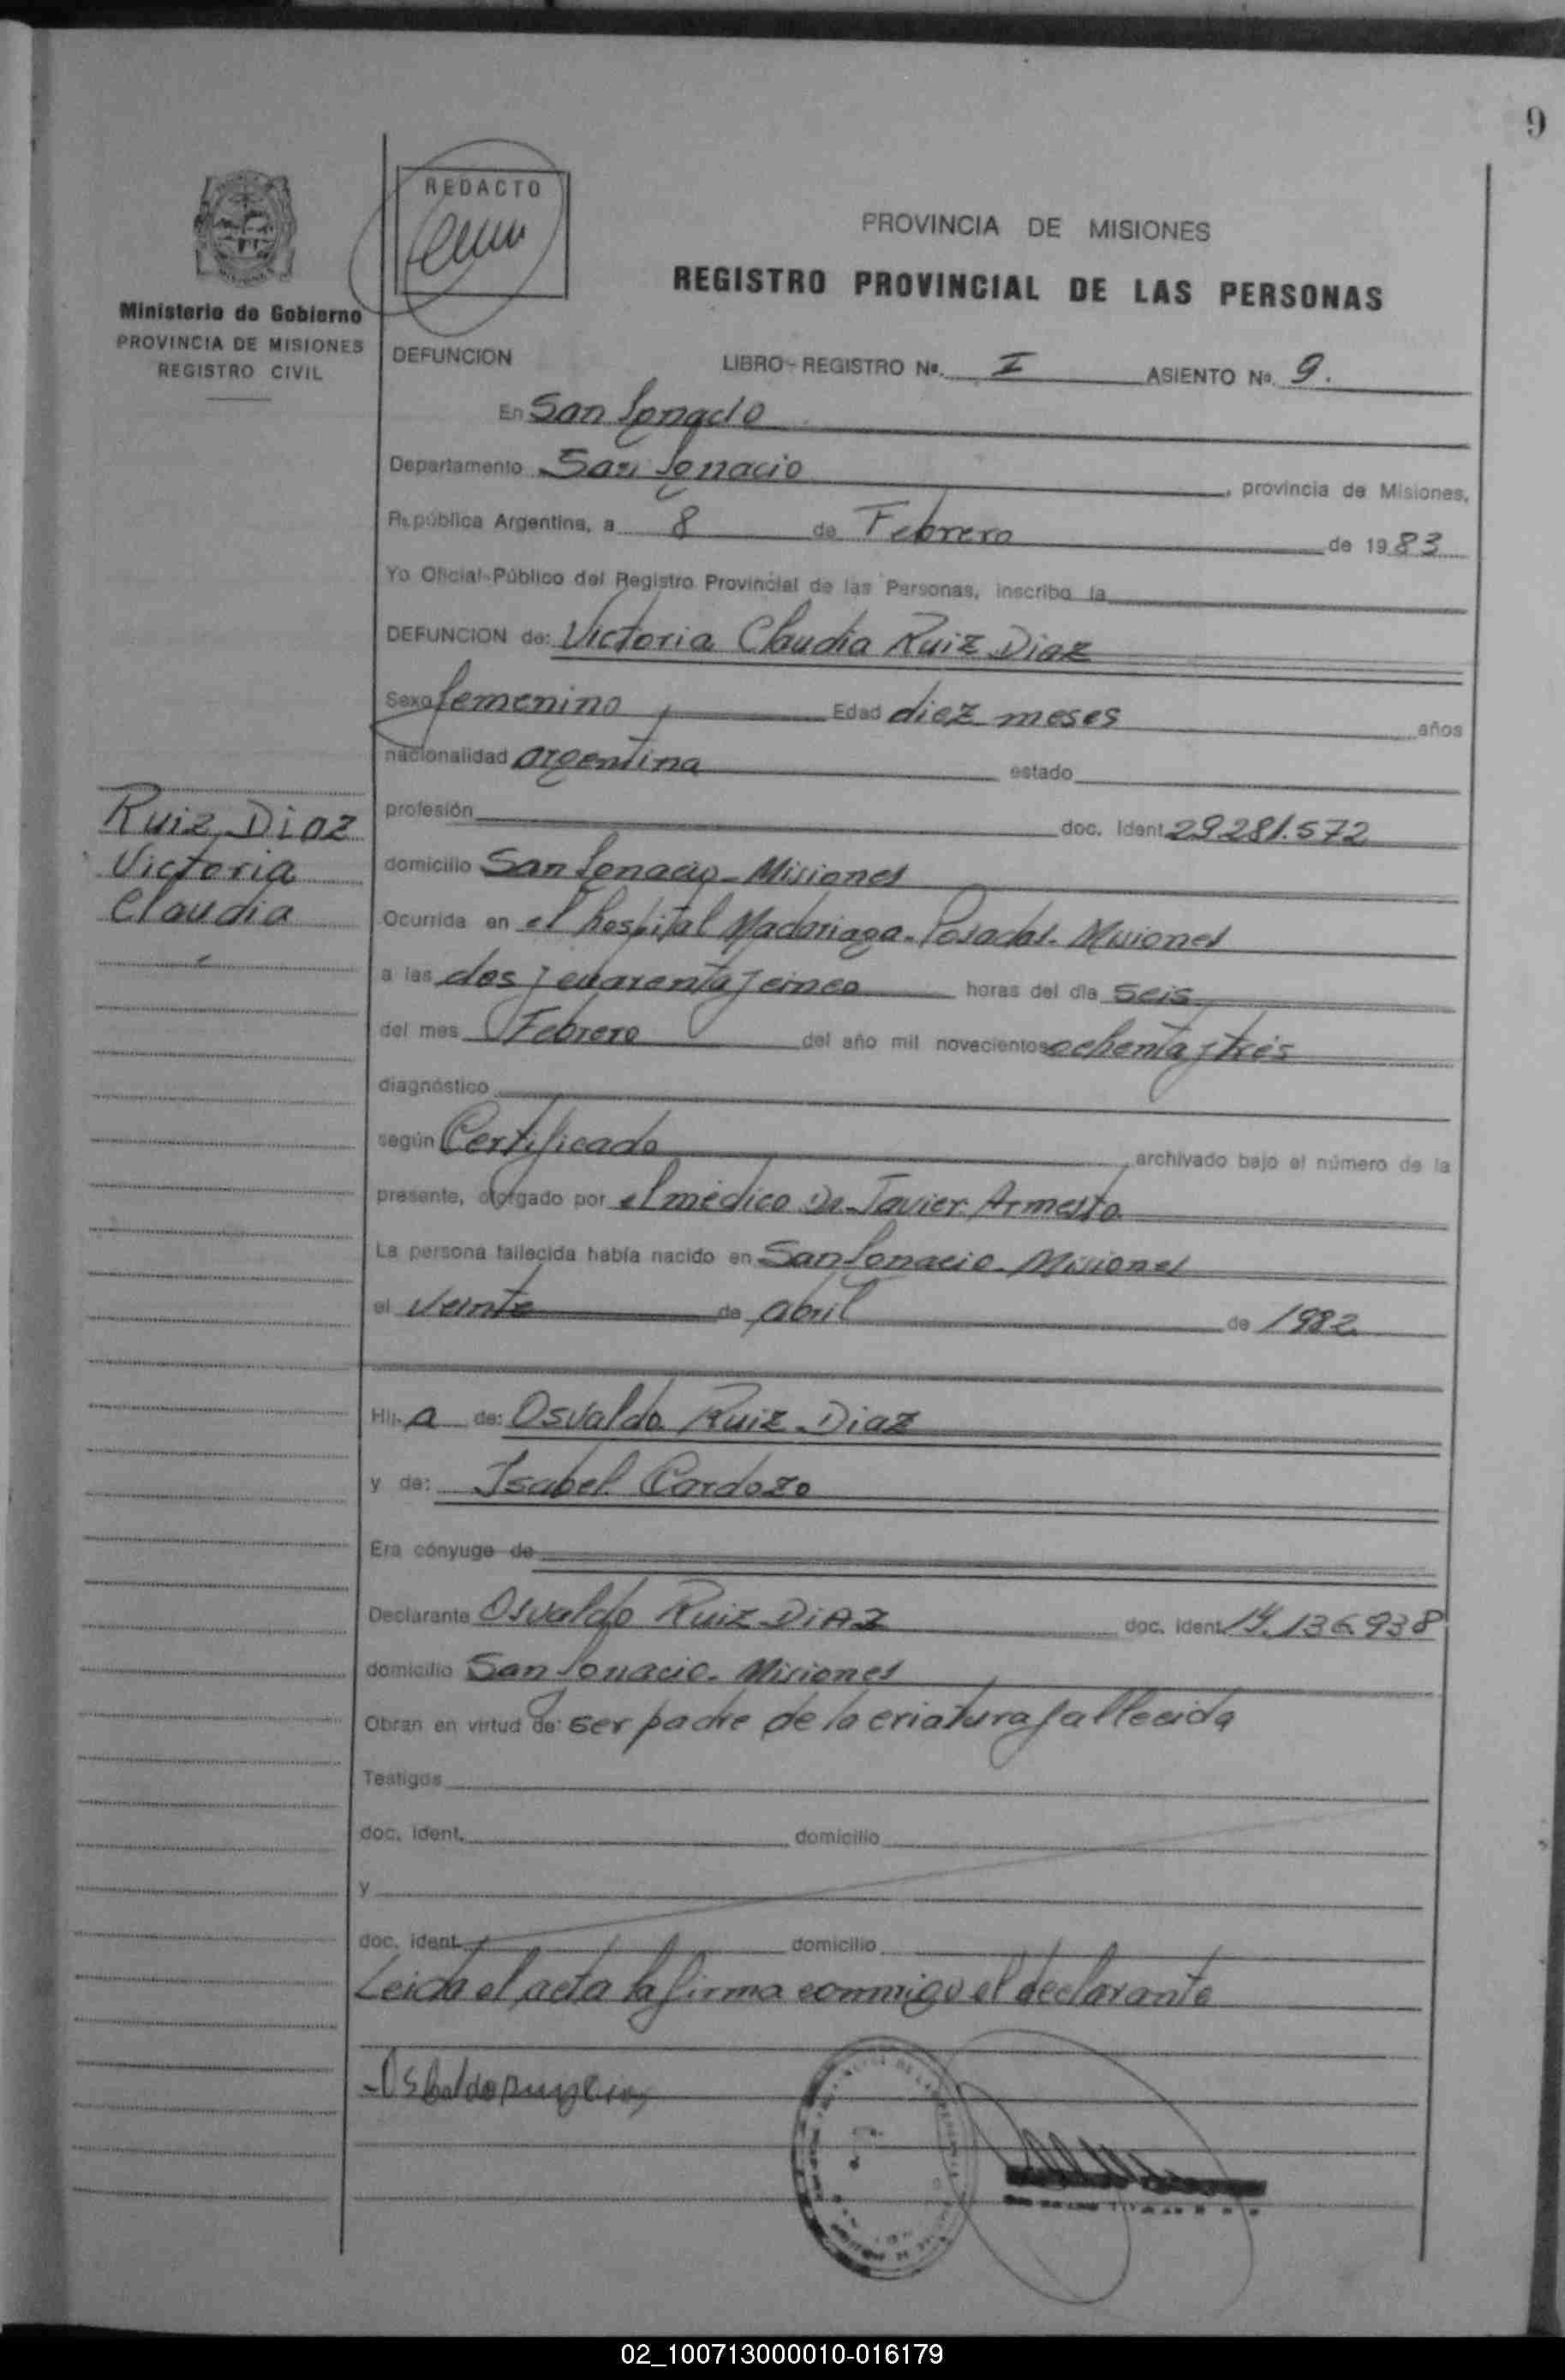 9
REDACTO
PROVINCIA DE MISIONES
REGISTRO PROVINCIAL DE LAS PERSONAS
Ministerio de Gobierno
PROVINCIA DE MISIONES
REGISTRO CIVIL
DEFUNCION LIBRO-REGISTRO Nº. I ASIENTO Nº. 9.
En San Ignacio
Departamento San Ignacio, provincia de Misiones,
República Argentina, a 8 de Febrero de 1983
Yo Oficial Público del Registro Provincial de las Personas, inscribo la
DEFUNCION de: Victoria Claudia Ruiz Diaz
Sexo femenino Edad diez meses años
nacionalidad argentina estado
profesión doc. Ident. 29281.572
Ruiz Diaz
Victoria
Claudia
domicilio San Ignacio - Misiones
Ocurrida en el hospital Madariaga - Posadas - Misiones
a las dos y cuarenta y cinco horas del día seis
del mes Febrero del año mil novecientos ochenta y trés
diagnóstico
según Certificado, archivado bajo el número de la
presente, otorgado por el médico Dr. Javier Armesto
La persona fallecida había nacido en San Ignacio - Misiones
el veinte de abril de 1982
Hij a de: Osvaldo Ruiz Diaz
y de: Isabel Cardozo
Era cónyuge de
Declarante Osvaldo Ruiz DiAz doc. ident. 14.136.938
domicilio San Ignacio - Misiones
Obran en virtud de: ser padre de la criatura fallecida
Testigos
doc. ident. domicilio
y
doc. ident. domicilio
Leida el acta la firma conmigo el declarante
02_100713000010-016179